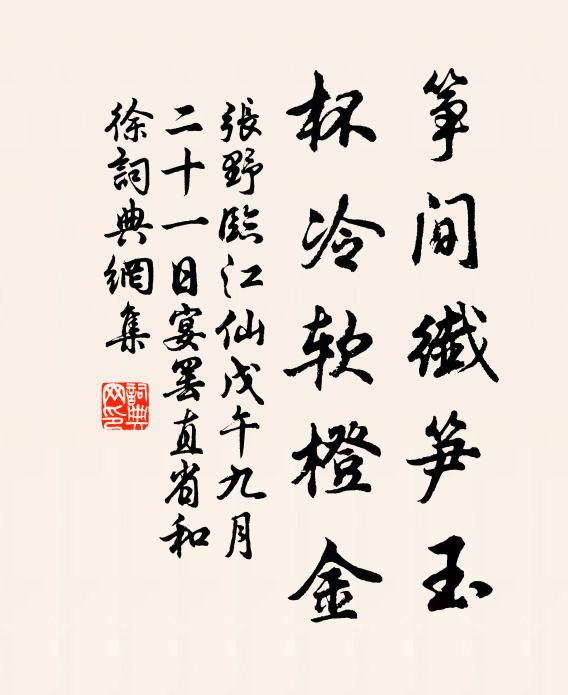 箏間纖笋玉
杯冷軟橙金
張野臨江仙戊午九月
二十一日宴罢直省和
徐詞典網集
詞典
网印